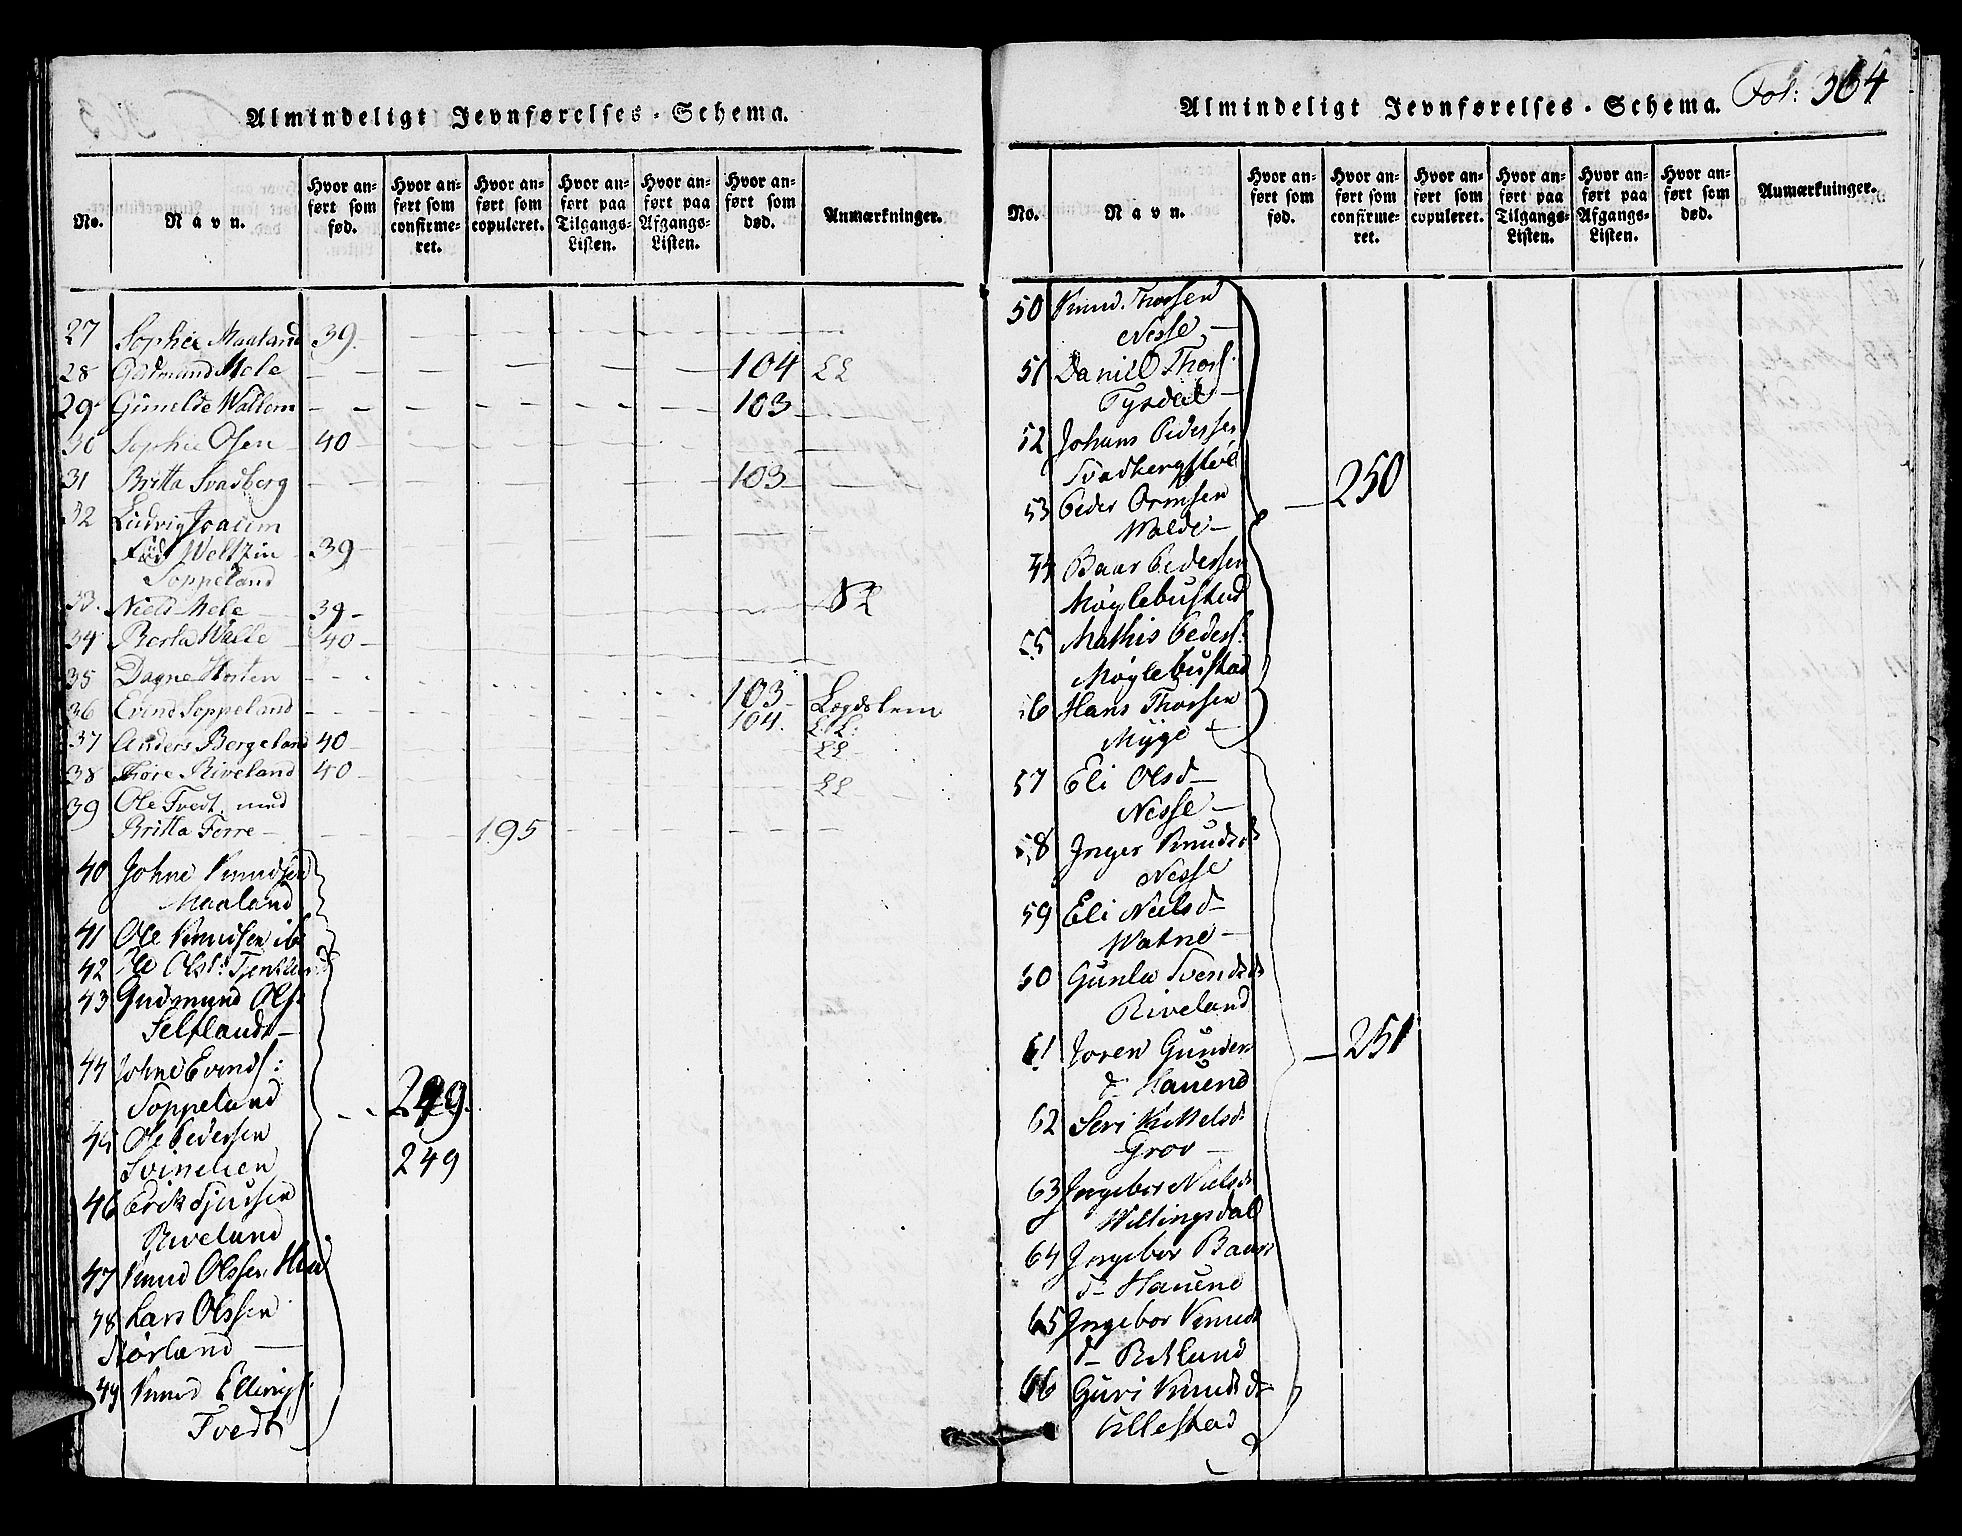 Almindeligt Jevnførelses-Schema.
No.
Navn.
Hvor an-
ført som
fød.
Hvor an-
ført som
confirme-
ret.
Hvor an-
ført som
copuleret.
Hvor an-
ført paa
Tilgangs-
Listen.
Hvor an-
ført paa
Afgangs-
Listen.
Hvor an-
ført som
død.
Anmærkninger.
27 Sophie Maaland 39.
28 Gudmund Mele 104
29 Gunilde Wallem 103
30 Sophie Olsen 40
31 Britta Svadberg 103
32 Ludvig Joacim
Weltzin 39
Soppeland
33. Niels Mele 39
34 Berta Walle 40
35 Dagne Horten 103 Logdslem
36 Evind Soppeland 104.
37 Anders Bergeland 40
38 Tore Riveland 40
39 Ole Tvedt med
Britta Førre 195
40 Johne Knudsen
Maaland
41 Ole Knudsen ib
42 Ole Ols:
43 Gudmund Ols:
Selflandt
44 Johne Evinds:
Soppeland 249.
45 Ole Pedersen
Svinelien 249
46 Erik Sjursen
Riveland
47 Knud Olssen
48 Lars Olssen
Nørland
49 Knud Ellings:
Tvedt
Almindeligt Jevnførelses-Schema. Fol: 364
No.
Navn.
Hvor an-
ført som
fød.
Hvor an-
ført som
confirme-
ret.
Hvor an-
ført som
copuleret.
Hvor an-
ført paa
Tilgangs-
Listen.
Hvor an-
ført paa
Afgangs-
Listen.
Hvor an-
ført som
død.
Anmærkninger.
50 Knud Thorsen
Nesse
51 Daniel Thors:
Tysdal
52 Johans Pedersen
Svadbergstøl 250
53 Peder Ormsen
Walde
54 Baar Pedersen
Møglebustad
55 Mathis Peders:
Møglebustad
56 Hans Thorsen
Myge
57 Eli Olsd
Nesse
58 Inger Knudsd
Nesse
59 Eli Nielsd
Watne
60 Gunla Svendsd
Riveland
61 Joren Gunder 251
d. Hauend
62 Seri Kittelsd
Grov
63 Ingebor Nielsd
Willingsdal
64 Ingebor Baars
d Hauene
65 Ingebor Knud
d Riklund
66 Guri Knudsd
Ollestad